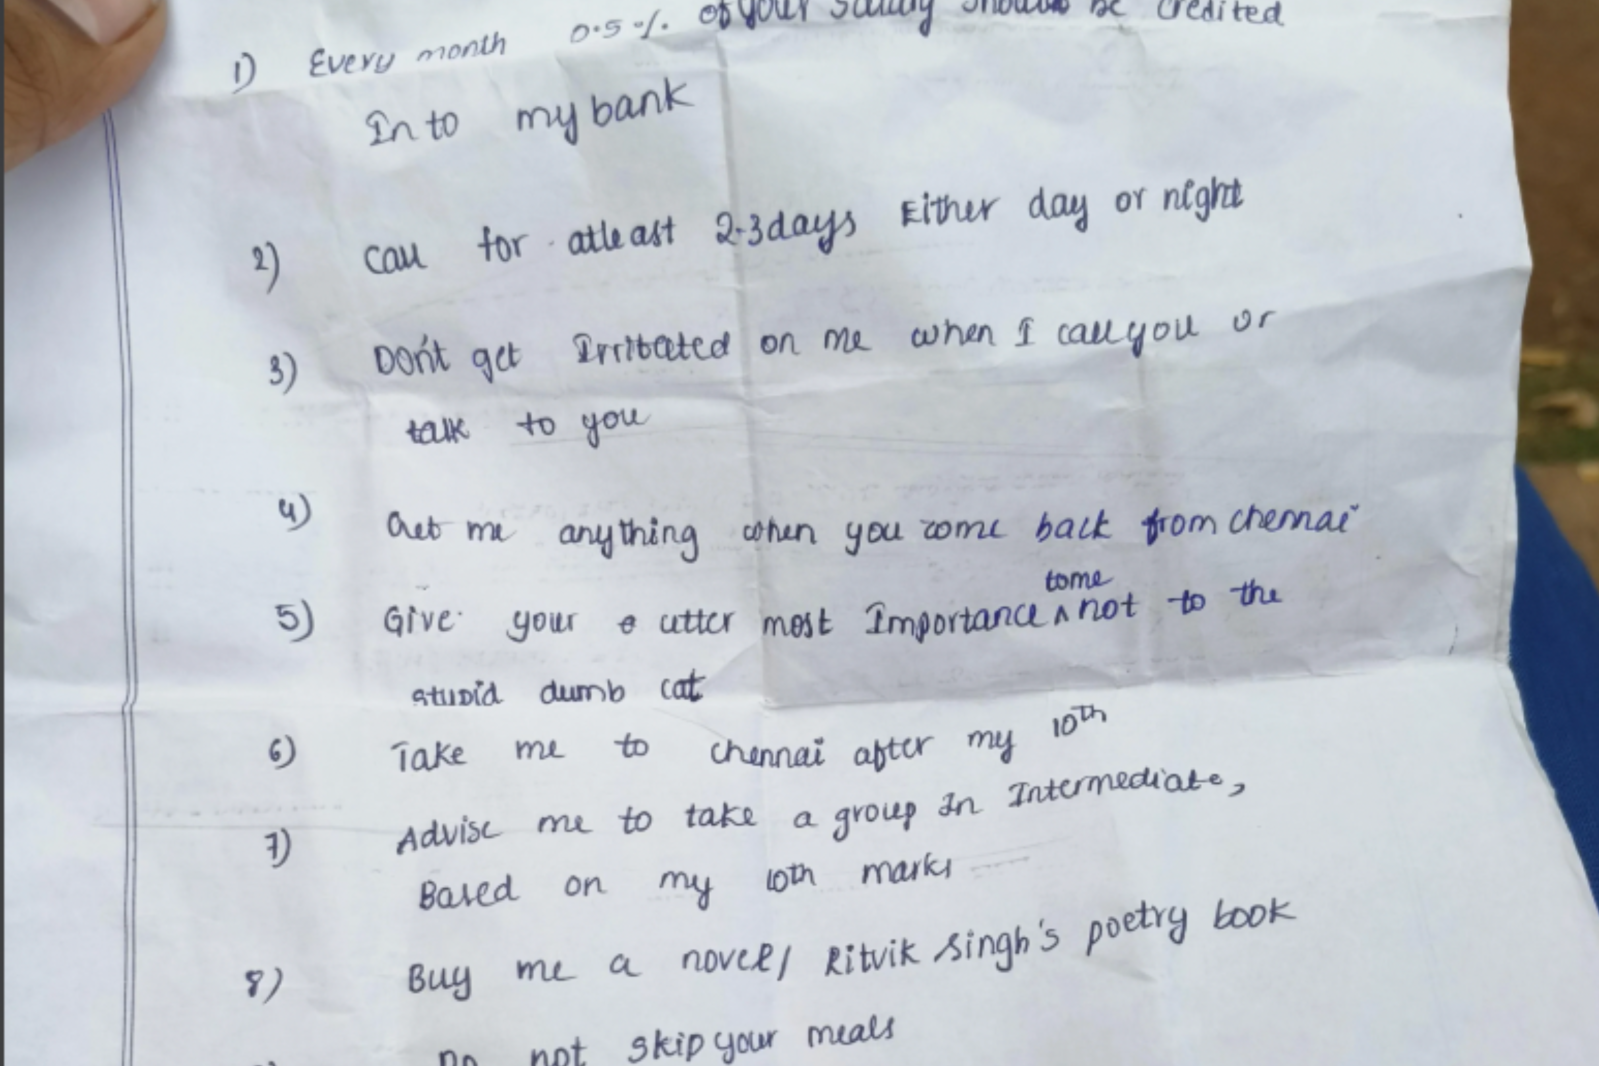 1) Every month 0.5%. of your salary should be credited
Into my bank
2) call for atleast 2-3days Either day or night
3) Don't get Irritated on me when I call you or
talk to you
4) Get me anything when you come back from chennai
tome
5) Give your utter most Importance ^ not to the
stupid dumb cat
6) Take me to chennai after my 10th
7) Advise me to take a group In Intermediate,
Based on my 10th marks
8) Buy me a novel/ Ritvik singh's poetry book
Do not skip your meals